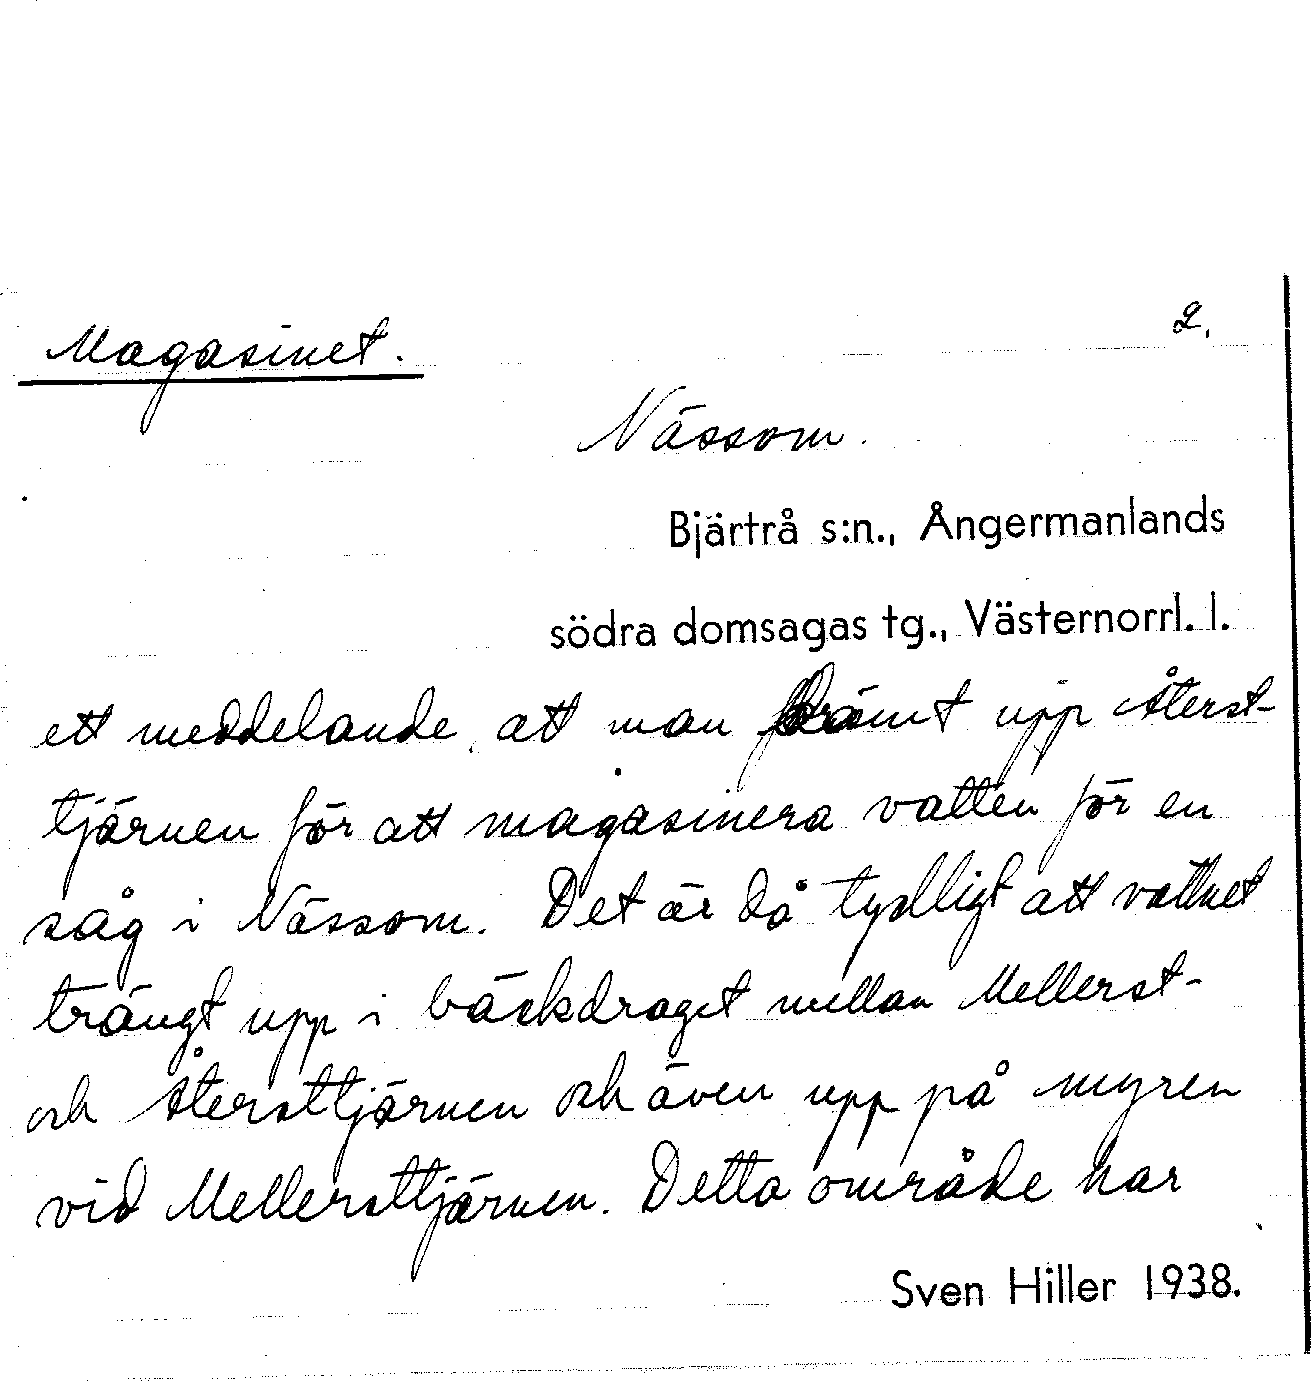 Magasinet.
2.
Nässom.
Bjärtrå s:n., Ångermanlands
södra domsagas tg., Västernorrl. l.
ett meddelande, att man dämt upp Återst-
tjärnen för att magasinera vatten för en
såg i Nässom. Det är då tydligt att vattnet
trängt upp i bäckdraget mellan Mellerst-
och Återsttjärnen och även upp på myren
vid Mellersttjärnen. Detta område har
Sven Hiller 1938.